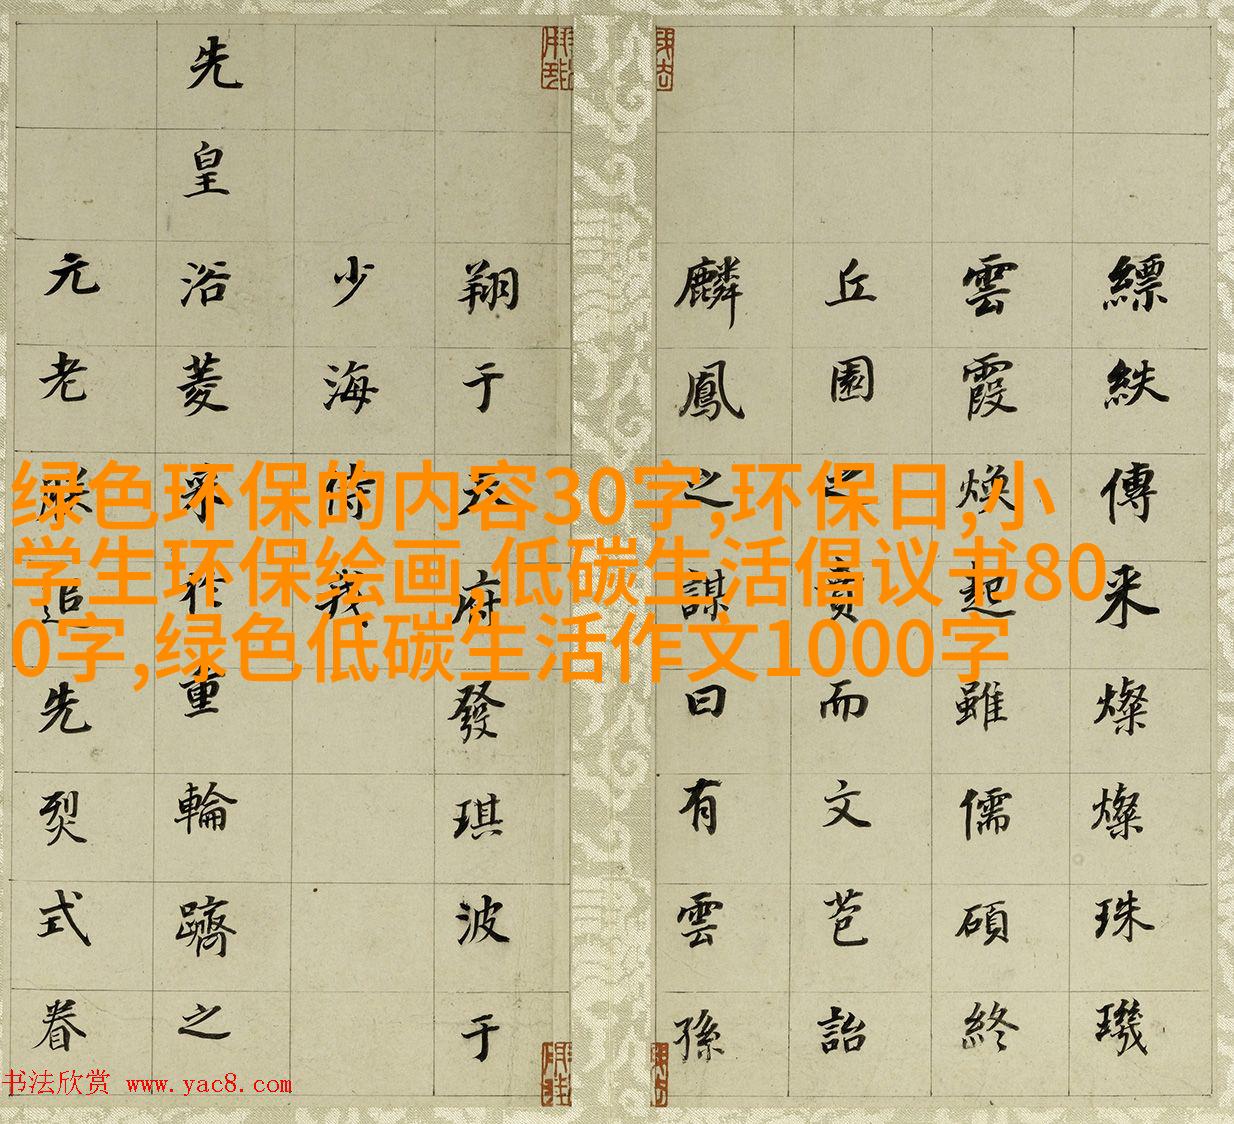 縹紩傳来燦燦珠璣
雲霞煥起雖儒碩終
丘園之賁而文芭詒
麟鳳之謀曰有雲孫
翔于府發琪波于
少海
先皇浴菱重輪躋之
元老追先烈式眷
绿色环保的内容30字,环保日,小
学生环保绘画,低碳生活倡议书80
0字,绿色低碳生活作文1000字
书法欣赏 www.yac8.com